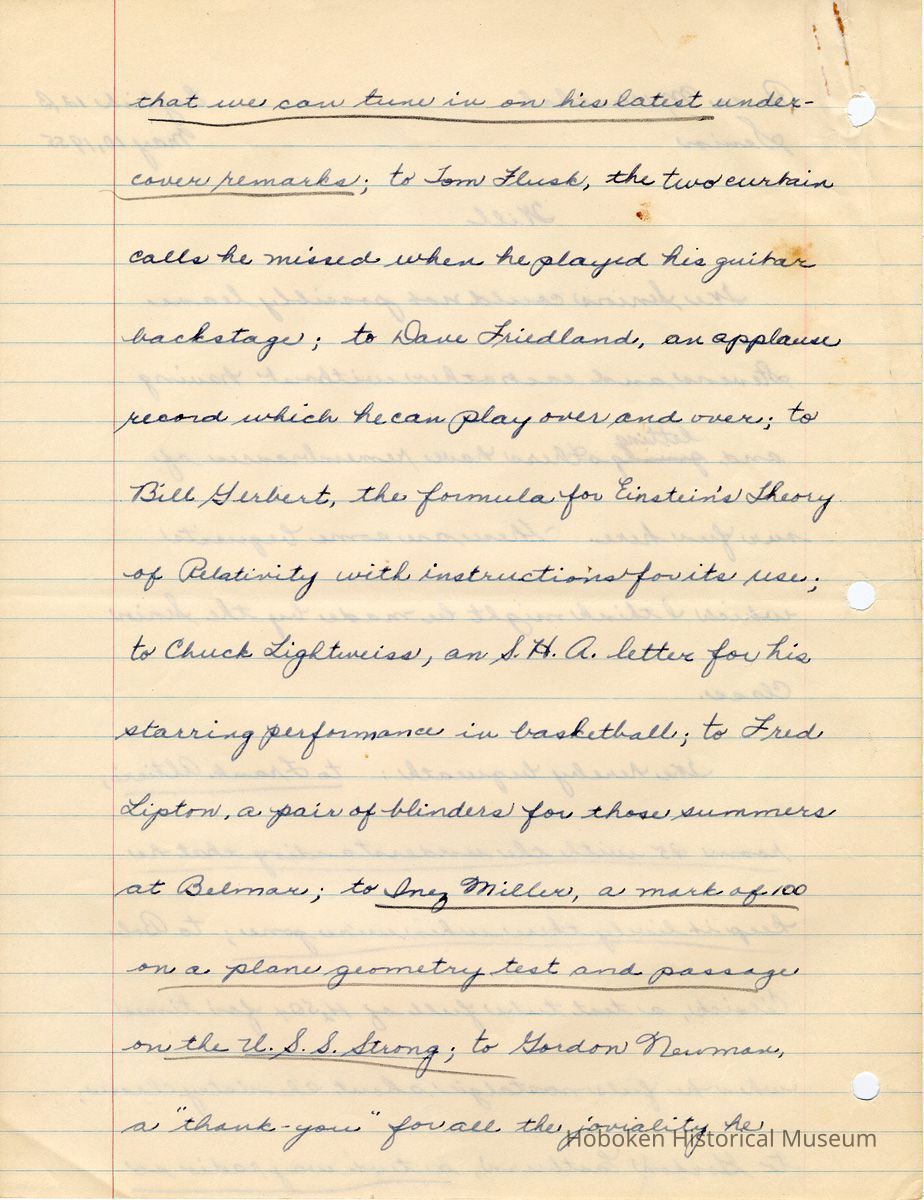 that we can tune in on his latest under-
cover remarks; to Tom Flusk, the two curtain
calls he missed when he played his guitar
backstage; to Dave Friedland, an applause
record which he can play over and over; to
Bill Gerbert, the formula for Einstein's Theory
of Relativity with instructions for its use;
to Chuck Lightweiss, an S. H. A. letter for his
starring performance in basketball; to Fred
Lipton, a pair of blinders for those summers
at Belmar; to Inez Miller, a mark of 100
on a plane geometry test and passage
on the U. S. S. Strong; to Gordon Newman,
a "thank-you" for all the joviality he
Hoboken Historical Museum